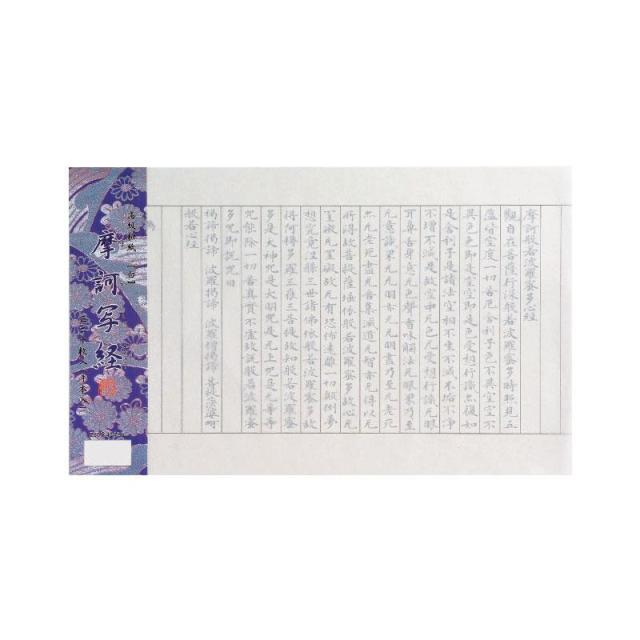 摩訶般若波羅蜜多心經
觀自在菩薩行深般若波羅蜜多時照見五
蘊皆空度一切苦厄舎利子色不異空空不
異色色即是空空即是色受想行識亦復如
是舎利子是諸法空相不生不滅不垢不淨
不增不減是故空中无色无受想行識无眼
耳鼻舌身意无色聲香味觸法无眼界乃至
无意識界无无明亦无无明盡乃至无老死
亦无老死盡无苦集滅道无智亦无得以无
所得故菩提薩埵依般若波羅蜜多故心无
罣礙无罣礙故无有恐怖遠離一切顛倒夢
想究竟涅槃三世諸佛依般若波羅蜜多故
得阿耨多羅三藐三菩提故知般若波羅蜜
多是大神咒是大明咒是无上咒是无等等
咒能除一切苦真實不虚故説般若波羅蜜
多咒即説咒曰
羯諦羯諦 波羅羯諦 波羅僧羯諦 菩提薩婆訶
般若心經
摩訶写経